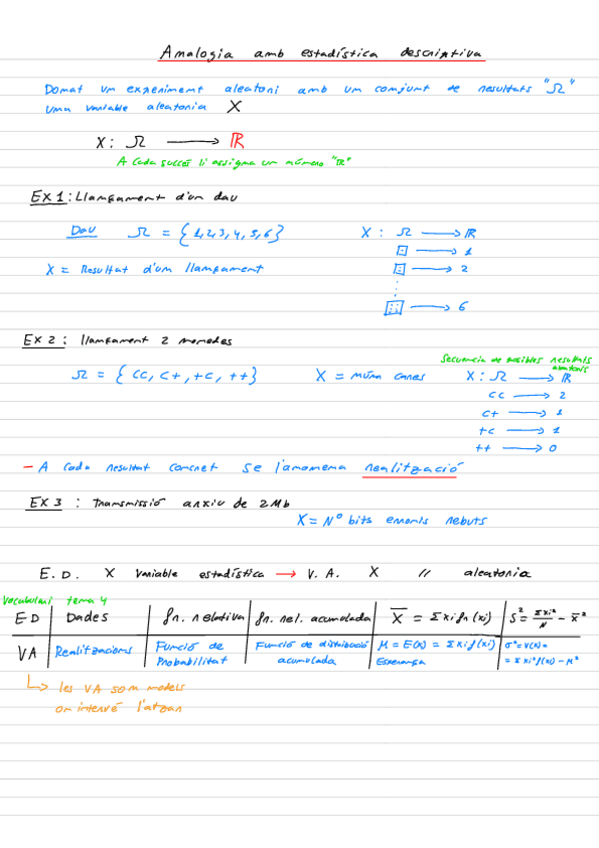 Analogia amb estadística descriptiva
Donat un experiment aleatori amb un conjunt de resultats "Ω"
una variable aleatoria X
X : Ω ⟶ ℝ
A cada succés li assigna un número "ℝ"
EX 1 : Llançament d'un dau
Dau Ω = { 1,2,3,4,5,6 } X : Ω ⟶ ℝ
⟶ 1
X = Resultat d'un llançament ⟶ 2
⟶ 6
EX 2 : llançament 2 monedes
Secuencia de posibles resultats
aleatoris
Ω = { CC, C+, +C, ++ } X = núm cares X : Ω ⟶ ℝ
CC ⟶ 2
C+ ⟶ 1
+C ⟶ 1
++ ⟶ 0
- A cada resultat concret se l'anomena realització
EX 3 : Transmissió arxiu de 2Mb
X = Nº bits erronis rebuts
E. D. X variable estadística ⟶ V. A. X // aleatoria
Vocabulari tema 4
ED Dades fr. relativa fr. rel. acumulada X̄ = Σ xi fr (xi) S² = Σxi²/N - x̄²
VA Realitzacions Funció de Probabilitat Funció de distribució acumulada μ = E(X) = Σ xi f(xi) Esperança σ² = V(X) = = Σ xi² f(xi) - μ²
↳ les VA som models
on intervé l'atzar